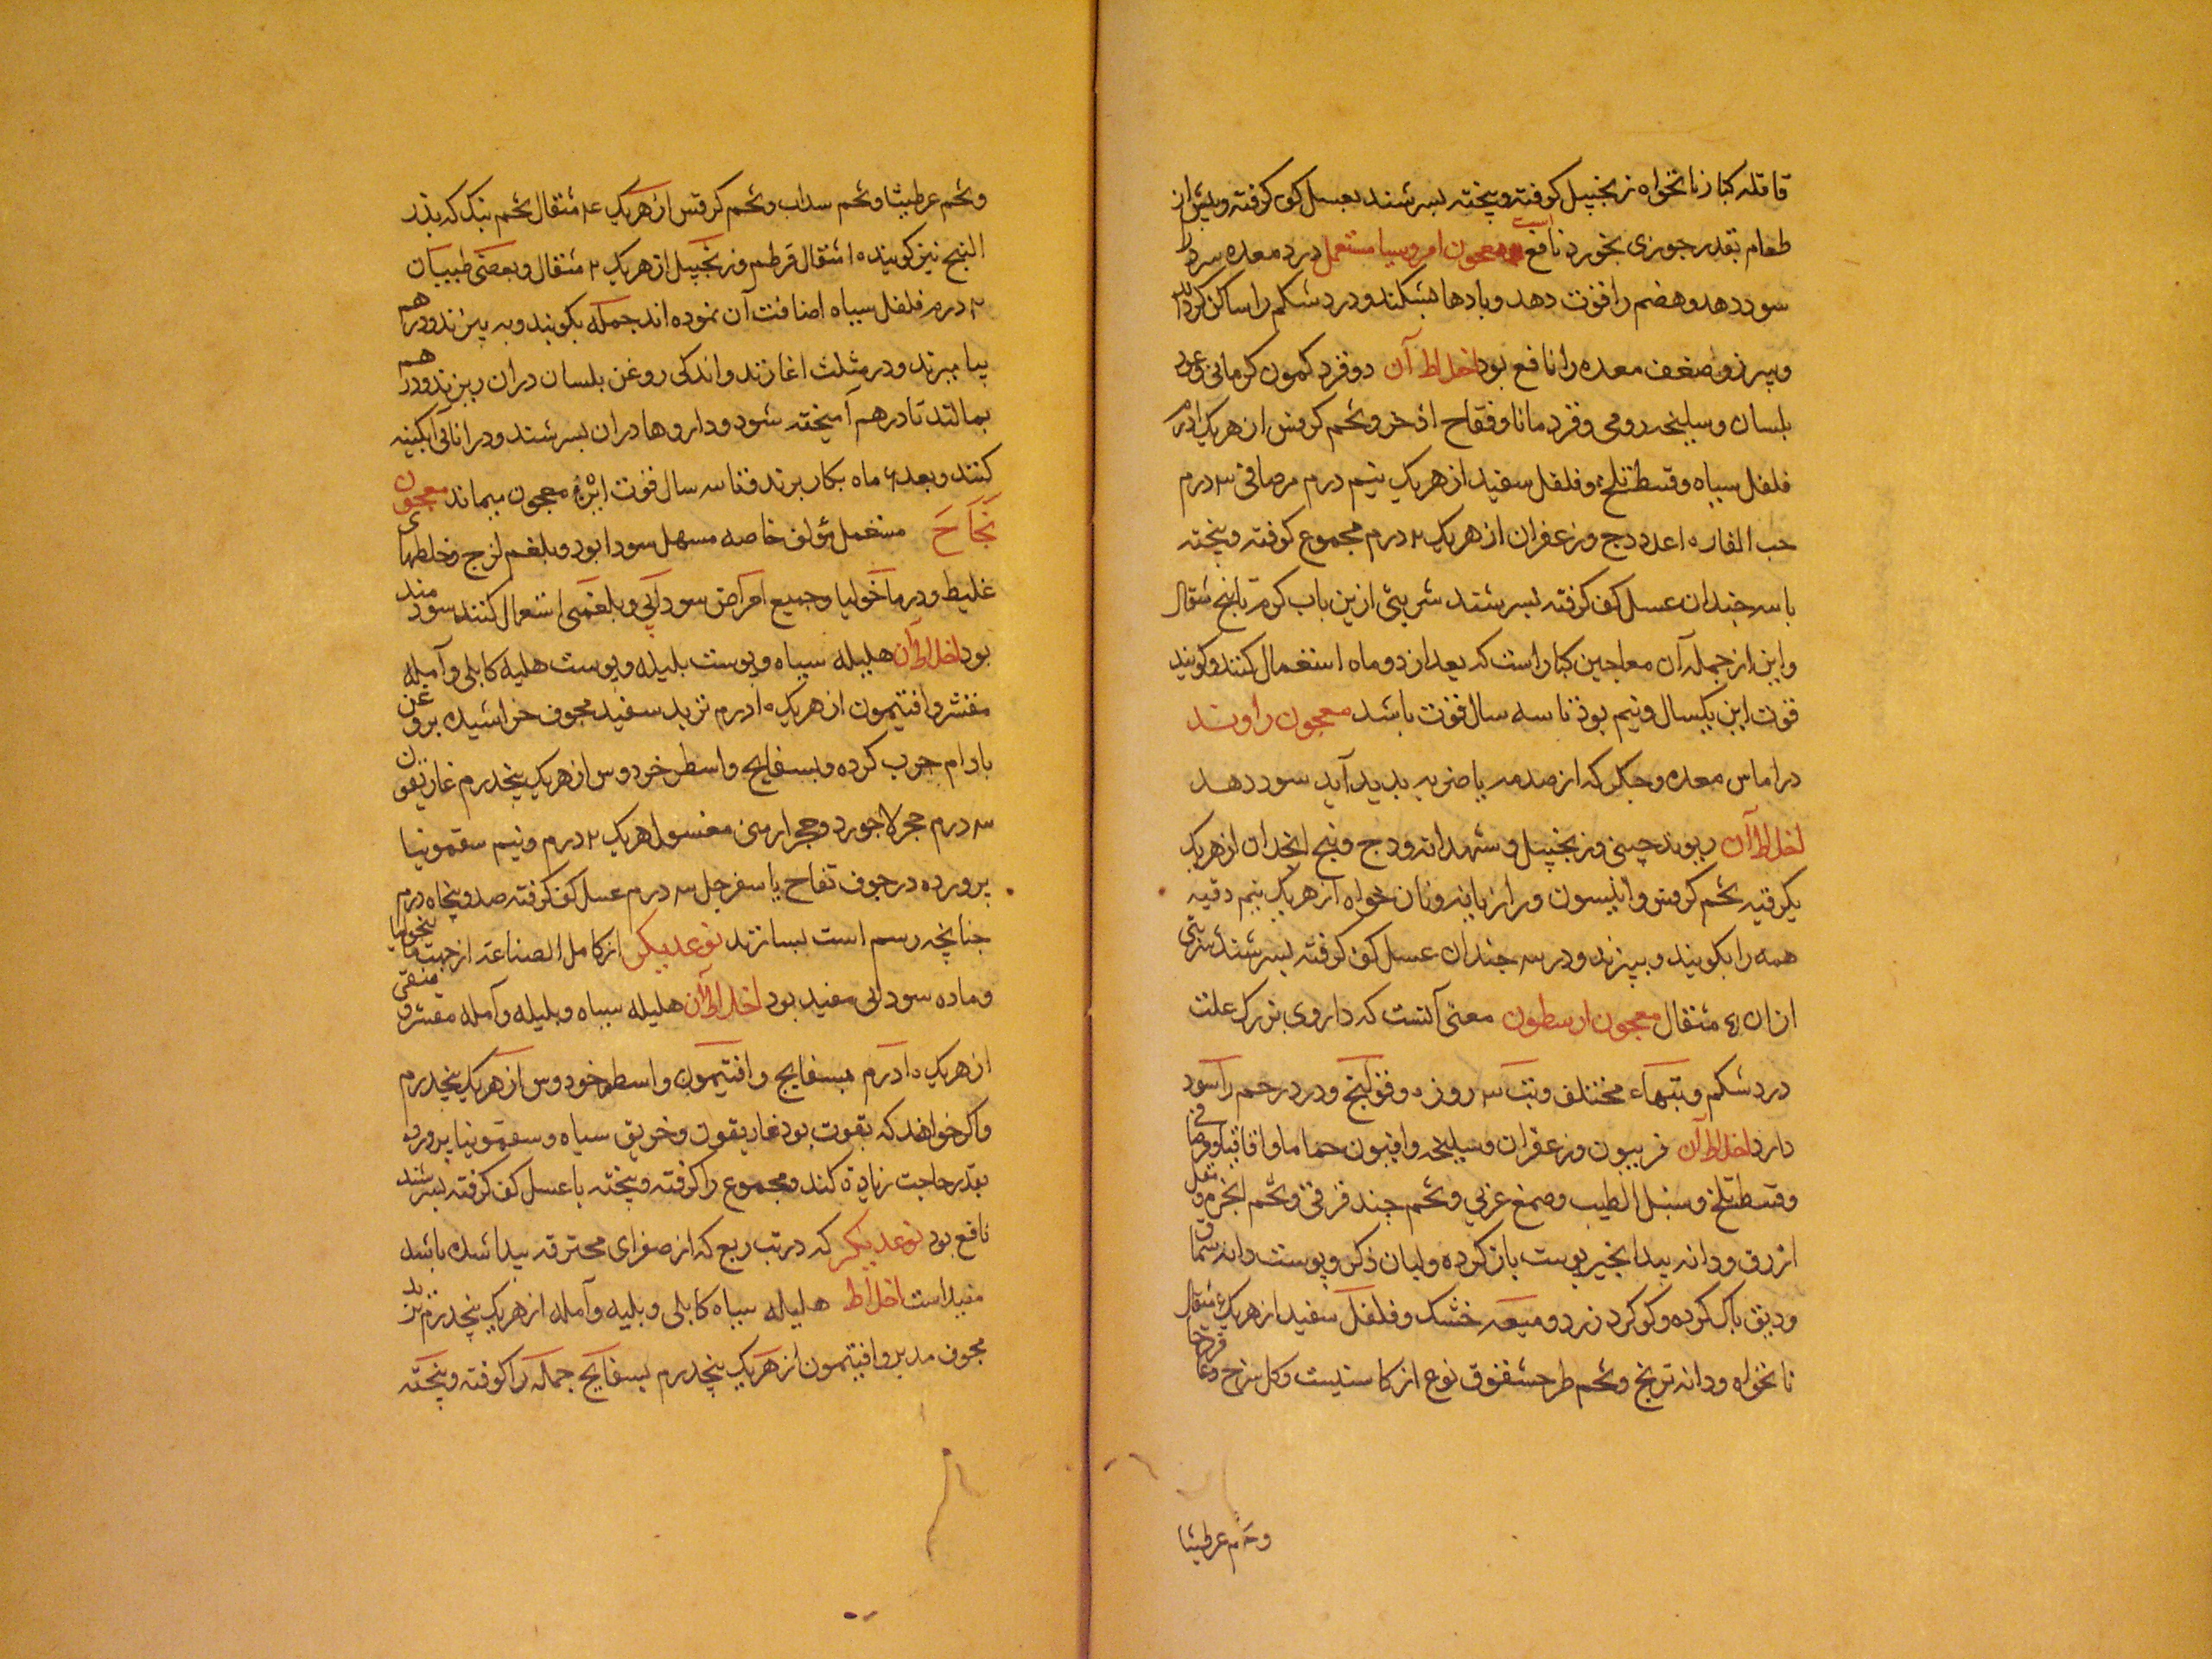 قاقله کبار نانخواه زنجبیل کوفته و پخته بسرشند بعسل کف کرفته و پیش از
طعام بقدر جوزی بخورد نافع است معجون امروسیا مستعمل درد معده سرد را
سود دهد و هضم را قوت دهد و بادها بشکند و درد شکم را ساکن کرداند
وسپرز و ضعف معده را نافع بود اخلاط آن دوقو زد کمون کرمانی و عود
بلسان و سلیخه رومی و قردمانا و فقاح اذخر و تخم کرفس از هریک ۱ درم
فلفل سیاه و قسط تلخ و فلفل سفید از هریک نیم درم مر صافی ۳ درم
حب الغار ۱۵ عدد وج و زعفران از هریک ۲ درم مجموع کوفته و پخته
با سه چندان عسل کف کرفته بسرشند شربتی ازین باب کرم تا پنج مثقال
و این از جمله آن معاجین کبار است که بعد از دو ماه استعمال کنند و کویند
قوت این یکسال و نیم بود تا سه سال قوت باشد معجون راوند
در اماس معده و جکر که از صدمه یا ضربه پدید آید سود دهد
اخلاط آن ریوند چینی و زنجبیل و شهدانه و وج و بیخ انجدان از هریک
یکوقیه تخم کرفس و انیسون و رازیانه و نان خواه از هریک نیم وقیه
همه را بکویند و ببیزند و در سه چندان عسل کف کرفته بسرشند شربتی
از ان ۴ مثقال معجون ارسطون معنی آنست که داروی بزرک علت
درد شکم و تبهاء مختلف و تب ۳ روزه و قولنج و درد رحم را سود
دارد اخلاط آن فربیون و زعفران و سلیخه و افیون حماما و اقاقیا و مرصافی
و قسط تلخ و سنبل الطیب و صمغ عربی و تخم جندقوقی و تخم انجره و مقل
ازرق و دانه بیدانجیر پوست باز کرده و لبان ذکر و پوست دانه سماق
و دبق پاک کرده و کوکرد زرد و میعه خشک و فلفل سفید از هریک ۴ مثقال
نانخواه و دانه ترنج و تخم طرحشقوق نوع از کاسنیست و کل سرخ
وتخم عرطنیثا
وتخم عرطنیثا و تخم سداب و تخم کرفس از هریک ۴ مثقال تخم بنک که بذر
البنج نیز کویند ۱۵ مثقال قرطم و زنجبیل از هریک ۲ مثقال و بعضی طبیبان
۲ درم فلفل سیاه اضافت آن نموده اند جمله بکویند و به بیزند و درهم
بیامیزند و در مثلث اغازند و اندکی روغن بلسان در ان ریزند و درهم
بمالند تا درهم آمیخته شود و داروها در ان بسرشند و در انائی آبکینه
کنند و بعد ۶ ماه بکار برند و تا سه سال قوت این معجون بیماند معجون
نجاح مستعمل مؤلف خاصه مسهل سودا بود و بلغم لزج و خلطهای
غلیظ و در ماخولیا و جمیع امراض سودآیی و بلغمی استعمال کنند سودمند
بود اخلاط آن هلیله سیاه و پوست بلیله و پوست هلیله کابلی و آمله
مقشر و افتیمون از هریک ۱۰ درم تربد سفید مجوف خراشیده بروغن
بادام چرب کرده و بسفایج و اسطوخودوس از هریک پنجدرم غاریقون
۳ درم حجر لاجورد و حجر ارمنی مغسول هریک ۲ درم و نیم سقمونیا
پرورده در جوف تفاح یا سفرجل ۳ درم عسل کف کرفته صد و پنجاه درم
چنانچه رسم است بسازند نوعدیکر از کامل الصناعة از جهت مالیخولیا
و ماده سودائی مفید بود اخلاط آن هلیله سیاه و بلیله و آمله مقشر و منقی
از هریک ۱۰ درم بسفایج و افتیمون و اسطوخودوس از هریک پنجدرم
و اکر خواهند که بقوت بود غاریقون و خربق سیاه و سقمونیا پرورده
بقدر حاجت زیاده کند و مجموع را کوفته و پخته با عسل کف کرفته بسرشند
نافع بود نوعدیکر که در تب ربع که از صفرای محترقه پیدا شده باشد
مفید است اخلاط هلیله سیاه کابلی و بلیله و آمله از هریک پنجدرم تربد
مجوف مدبر و افتیمون از هریک پنجدرم بسفایج جمله را کوفته و پخته